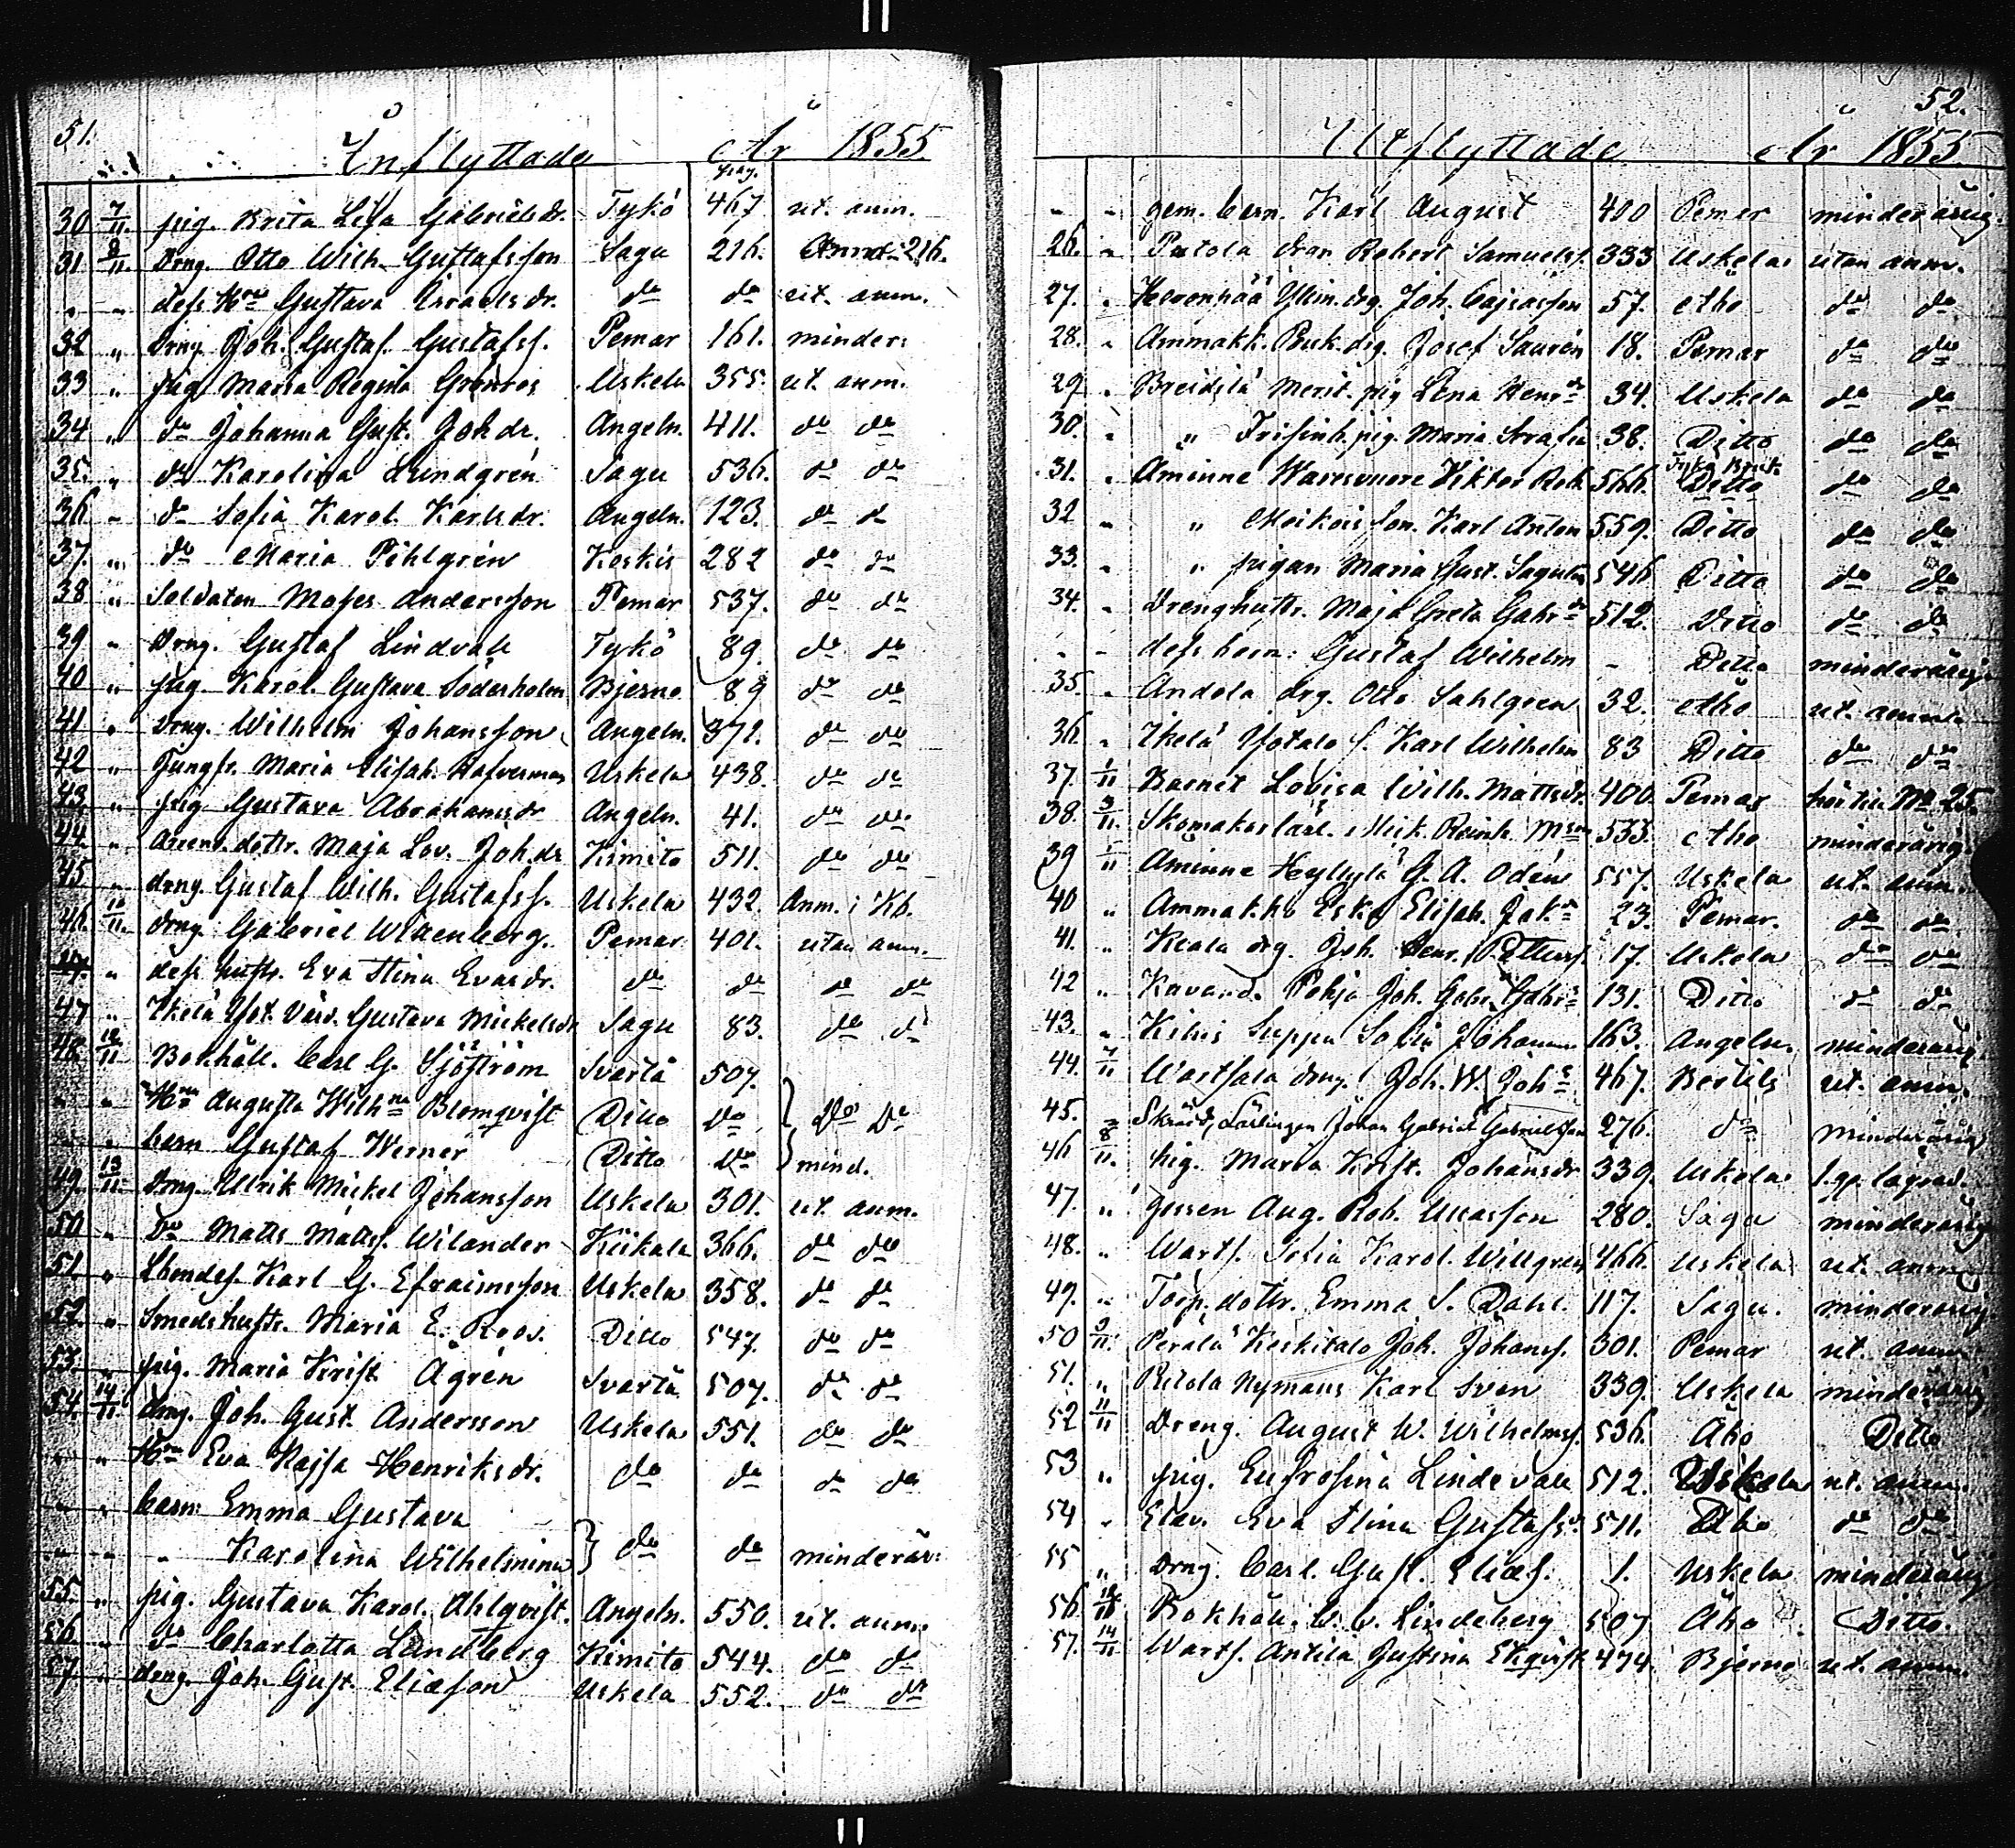 51.
Inflyttade År 1855
pag.
30 7/11 pig. Brita Lisa Gabrielsdr. Tykö 467 ut. anm.
31 8/11 Drng. Otto Wilh. Gustafsson Sagu 216. Anmt. 216.
" " dess Hru Gustava Israelsdr. do do ut. anm.
32 " Drng Joh. Gustaf Gustafss. Pemar 161. minder:
33 " pig Maria Regina Grönros Uskela 355. ut. anm.
34 " do Johanna Gust. Joh dr. Angeln. 411. do do
35. " do Karolina Lundgrén Sagu 536. do do
36 " do Sofia Karol. Karlsdr. Angeln. 123. do do
37. " do Maria Pihlgrén Koskis 282 do do
38 " Soldaten Moses Andersson Pemar 537. do do
39 " Drng. Gustaf Lindvall Tykö 89. do do
40 " pig. Karol. Gustava Söderholm Bjerno 89 do do
41 " Drng. Wilhelm Johansson Angeln. 371. do do
42 " Jungfr. Maria Elisab. Uskela 438. do do
43. " pig. Gustava Abrahamsdr Angeln. 41. do do
44. " dottr. Maja Lov. Joh.dr Kimito 511. do do
45 " drng. Gustaf Wilh. Gustafss. Uskela 432. Anm. i Kb.
46. 10/11 Drng. Gabriel Wittenberg. Pemar 401. utan anm.
47. " dess hustr. Eva Stina Evasdr. do do do do
47 " Ikelä Yot. Gustava Mickelsdr Sagu 83. do do
48. 12/11 Bokhåll. Carl G. Sjöström Svartå 507.
" " Hru Augusta Wilhna Blomqvist Ditto Do } Do Do
" " barn Gustaf Werner Ditto Do } mind.
49. 13/11 Drng. Ulrik Mickel Johansson Uskela 301. ut. anm.
50 " Do Matts Mattss. Wilander Kiikala 366. do do
51. " Karl G. Efraimsson Uskela 358. do do
52. " Smeds hustr. Maria E. Roos. Ditto 547. do do
53. " pig. Maria Krist Ågrén Svartå 507. do do
54. 14/11 drng. Joh. Gust. Andersson Uskela 551. do do
" " Hru Eva Kajsa Henriksdr. do do do do
" " barn: Emma Gustava
" " " Karolina Wilhelmina } do do minderår:
55. " pig. Gustava Karol. Ahlqvist. Angeln. 550. ut. anm.
56 " do Charlotta Lundberg Kimito 544. do do
57 " drng. Joh. Gust. Eliasson Uskela 552. do do
52.
Utflyttade År 1855
- - gem. barn. Karl August 400 Pemar minderårig.
26. " Putola dran Robert Samuelss. 333 Uskela utan anm.
27. " drg. Joh. Cajsasson 57. Åbo do do
28. " Ammakk. drg. Josef Saurén 18. Pemar do do
29 " Breidilä Merit. pig Lena Henrdr 34. Uskela do do
30. " " pig. Maria 38. Ditto do do
31. " Åminne Viktor Rob. 566. Tykö Bruk Ditto do do
32 " " son. Karl Anton 559. Ditto do do
33. " " pigan Maria Gust. 546 Ditto do do
34. " Drenghustr. Maja Greta Gabrdr 512. Ditto do do
- - dess barn: Gustaf Wilhelm - Ditto minderårig.
35. " Andola drg. Otto Sahlgren 32. Åbo ut. anm.
36. " Ikelä Yotalo s. Karl Wilhelm 83 Ditto do do
37. 1/11 Barnet Lovisa Wilh. Mattsdr. 400. Pemar hör till No 25.
38. 3/11. Skomakarlärl. Mick. Reinh. 533. Åbo minderårig.
39 5/11 Åminne Heylylä G. A. Odén 557. Uskela ut. anm.
40 " Ammakko Esko Elisab. Jakdr 23. Pemar. do do
41. " drg. Joh. Henr. 17. Uskela do do
42 " Kavand. Pohja Joh. Gabr. Gabrs 131. Ditto do do
43. " Seppä Sofia Johanna 163. Angeln. minderårig.
44. 7/11 Wartsala drng. Joh. W. Johs 467. Bertils ut. anm.
45. " Skrädd. Lärlingen Johan Gabriel Gabrielsson 276. do minderårig
46 8/11. pig. Maria Krist. Johansdr 339. Uskela
47. " gossen Aug. Rob. 280. Sagu minderårig
48. " Warts. Sofia Karol. Willgren 466. Uskela ut. anm.
49. " Torp. dottr. Emma S. Dahl. 117. Sagu. minderårig
50 9/11. Perälä Keskitalo Joh. Johanss. 301. Pemar ut. anm.
51. " Nymans Karl Sven 339. Uskela minderårig
52 11/11 Dreng. August W. Wilhelmss. 536. Åbo Ditto
53 " pig. Eufrosina Lindevall 512. Uskela ut. anm.
54 " Eva Stina Gustafsd. 511. Åbo do do
55 " Drng. Carl Gust. Eliæs. 1. Uskela minderårig
56. Bokhåll. Lindeberg 507 Åbo Ditto.
57. 14/11 Warts. Antila Justina Ekqvist 474. Bjerno ut. anm.